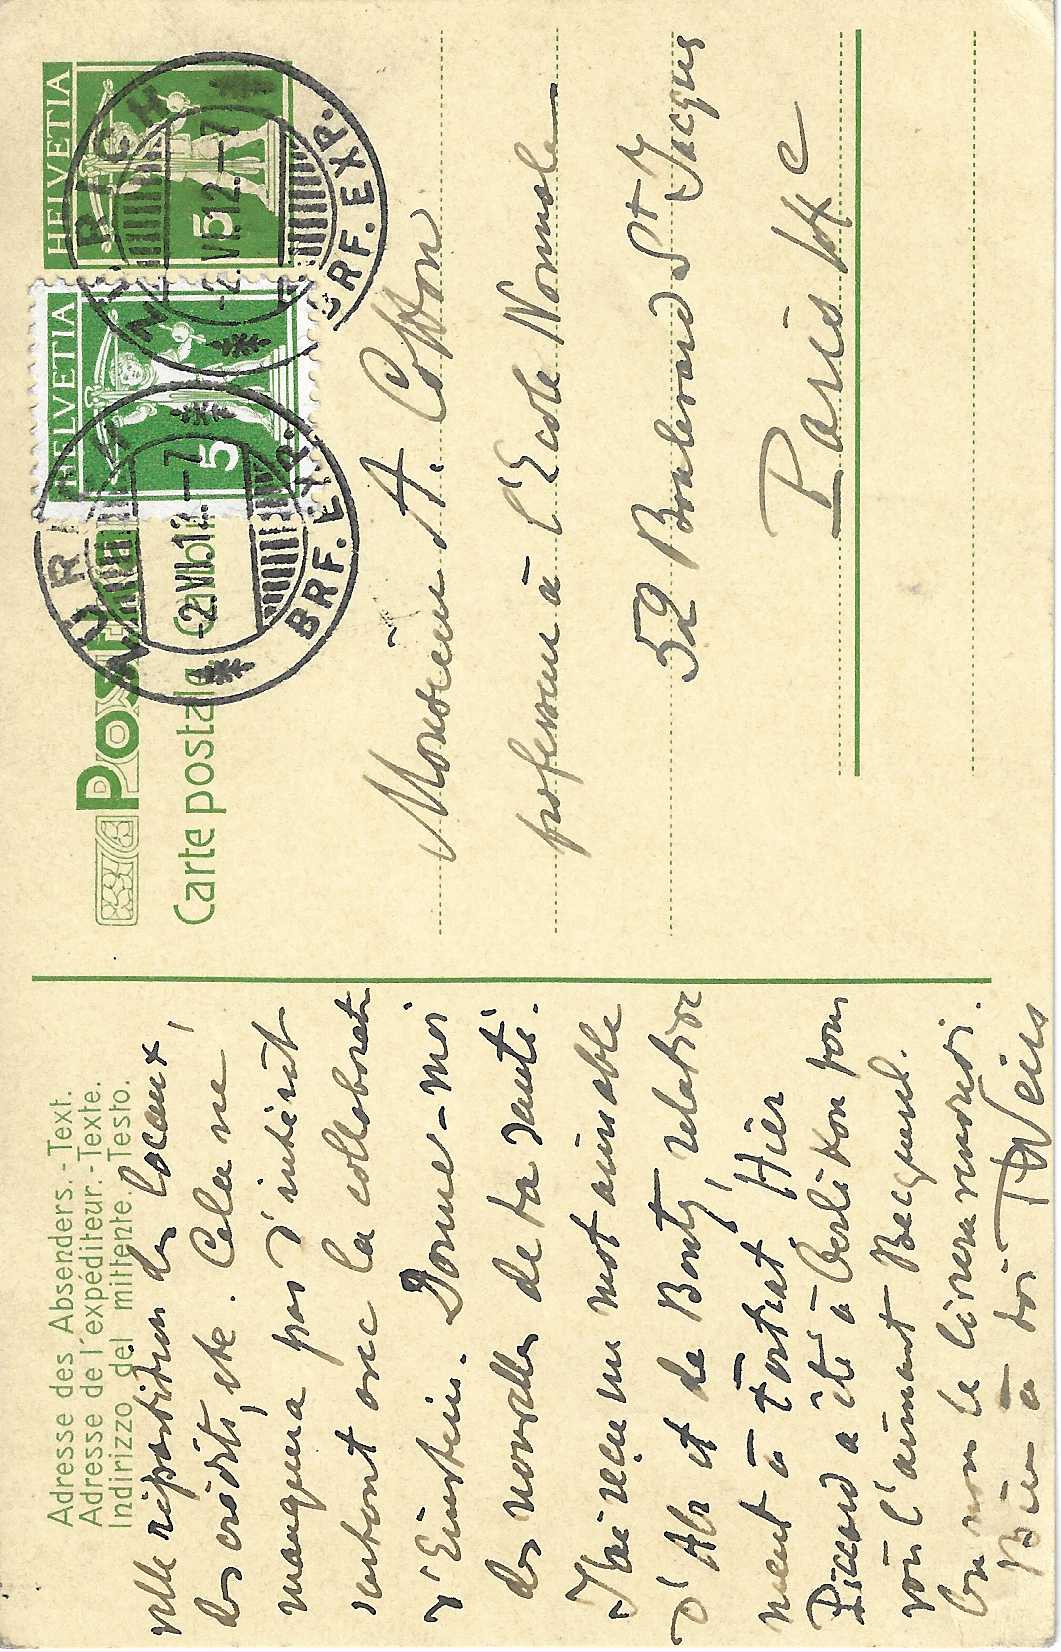 Adresse des Absenders. - Text.
Adresse de l'expéditeur. - Texte.
Indirizzo del mittente. Testo.
velle répartition des locaux,
des crédits, etc. Cela ne
manquera pas d'intérêt
surtout avec la collaborat
d'Einstein. Donne-moi
des nouvelles de ta santé.
J'ai reçu un mot aimable
d'Abr et de Bouty, relative
ment à Fortrat. Hier
Piccard a été à Oerlikon pour
voir l'aimant Becquerel.
On nous le livrera
Bien à toi PWeiss
Carte postale
HELVETIA
5
HELVETIA
5
ZÜRICH
-2.VII.12.-7
BRF. EXP.
ZÜRICH
-2.VII.12.-7
BRF. EXP.
Monsieur A. Cotton
professeur à l'Ecole Normale
52 Boulevard St Jacques
Paris